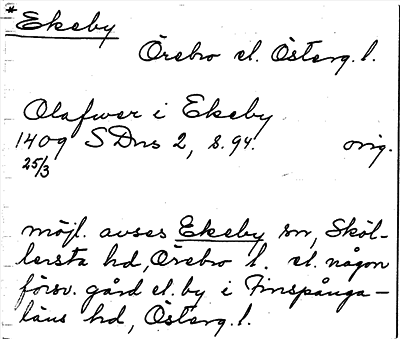 * Ekeby
Örebro el. Österg. l.
Olafwer i Ekeby
1409 SDns 2, s. 94. orig.
25/3
möjl. avses Ekeby sn, Sköl-
lersta hd, Örebro l. el. någon
försv. gård el. by i Finspånga-
läns hd, Österg. l.